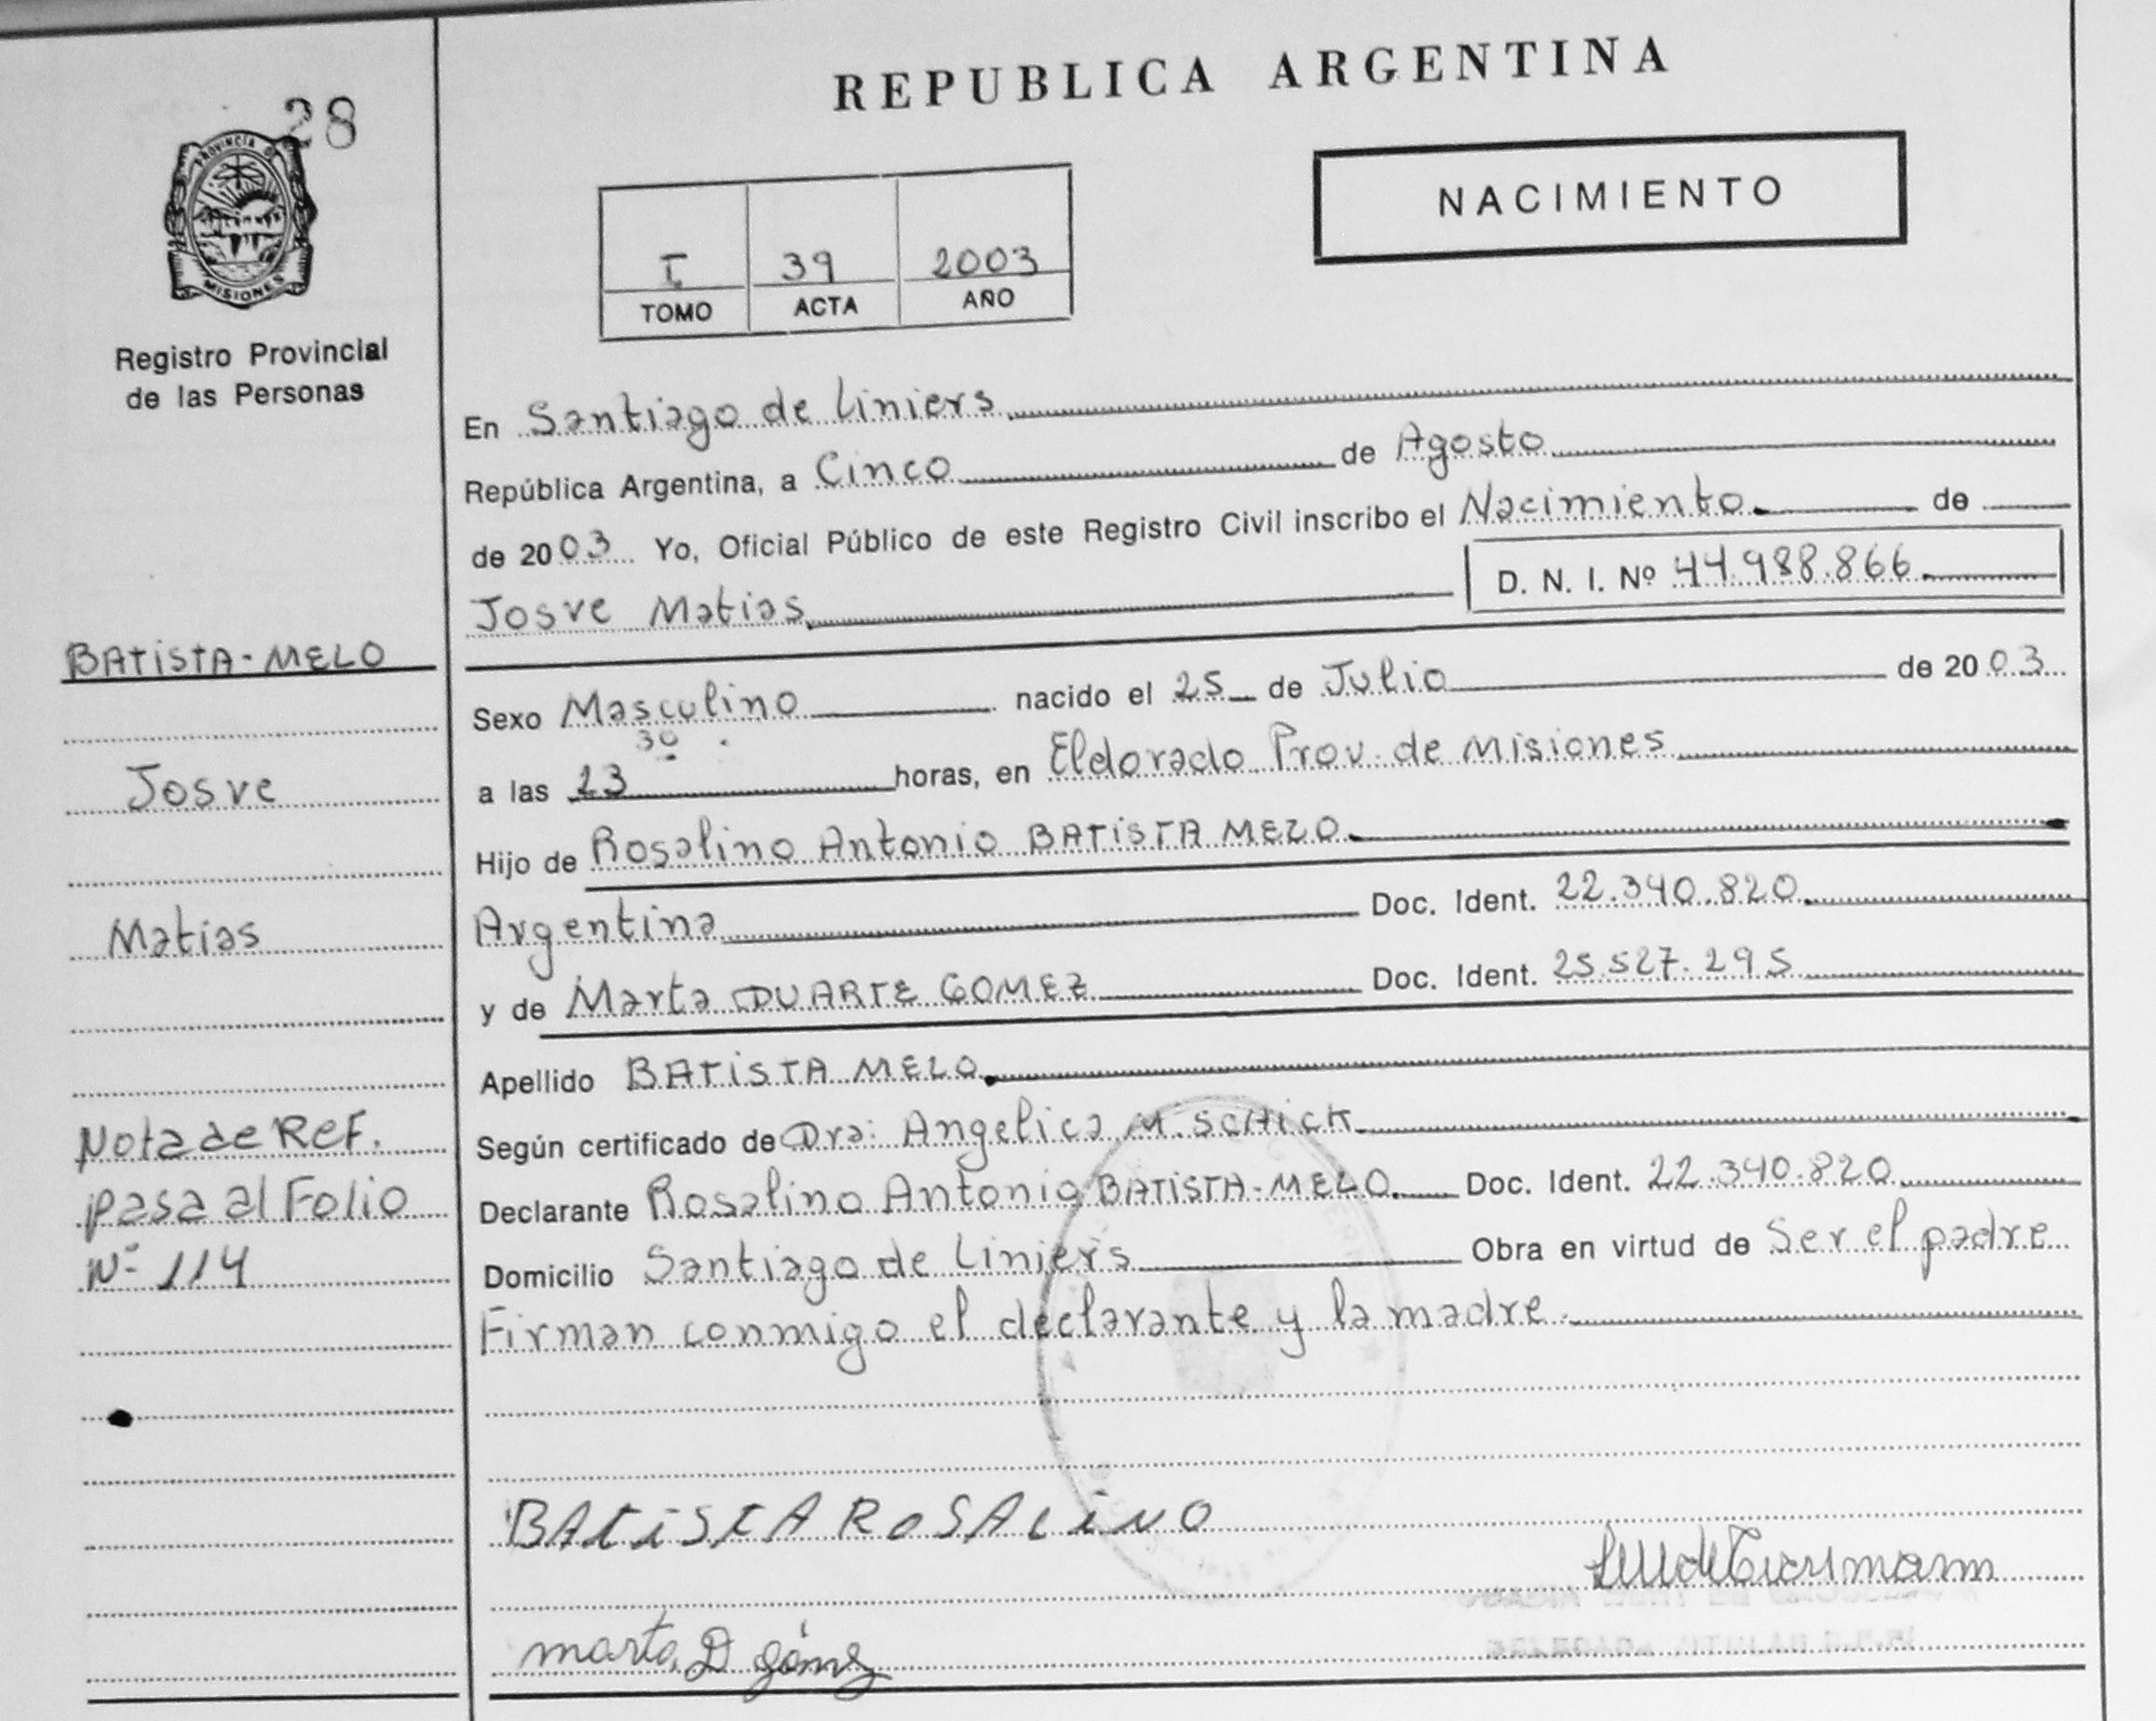 REPUBLICA ARGENTINA
28
PROVINCIA DE
MISIONES
Registro Provincial
de las Personas
NACIMIENTO
I 39 2003
TOMO ACTA AÑO
En Santiago de Liniers
República Argentina, a Cinco de Agosto
de 2003 Yo, Oficial Público de este Registro Civil inscribo el Nacimiento de
Josve Matias D. N. I. Nº 44.988.866
BATISTA-MELO
Sexo Masculino nacido el 25 de Julio de 2003
a las 23 30 horas, en Eldorado Prov. de Misiones
Josve
Hijo de Rosalino Antonio BATISTA MELO
Argentina Doc. Ident. 22.340.820
Matias
y de Marta DUARTE GOMEZ Doc. Ident. 25.527.295
Apellido BATISTA MELO
Según certificado de Dra: Angelica M. SCHICK
Nota de Ref.
Declarante Rosalino Antonio BATISTA-MELO. Doc. Ident. 22.340.820
pasa al Folio
Domicilio Santiago de Liniers Obra en virtud de Ser el padre
Nº 114
Firman conmigo el declarante y la madre.
BATISTA ROSALINO
marta D góm